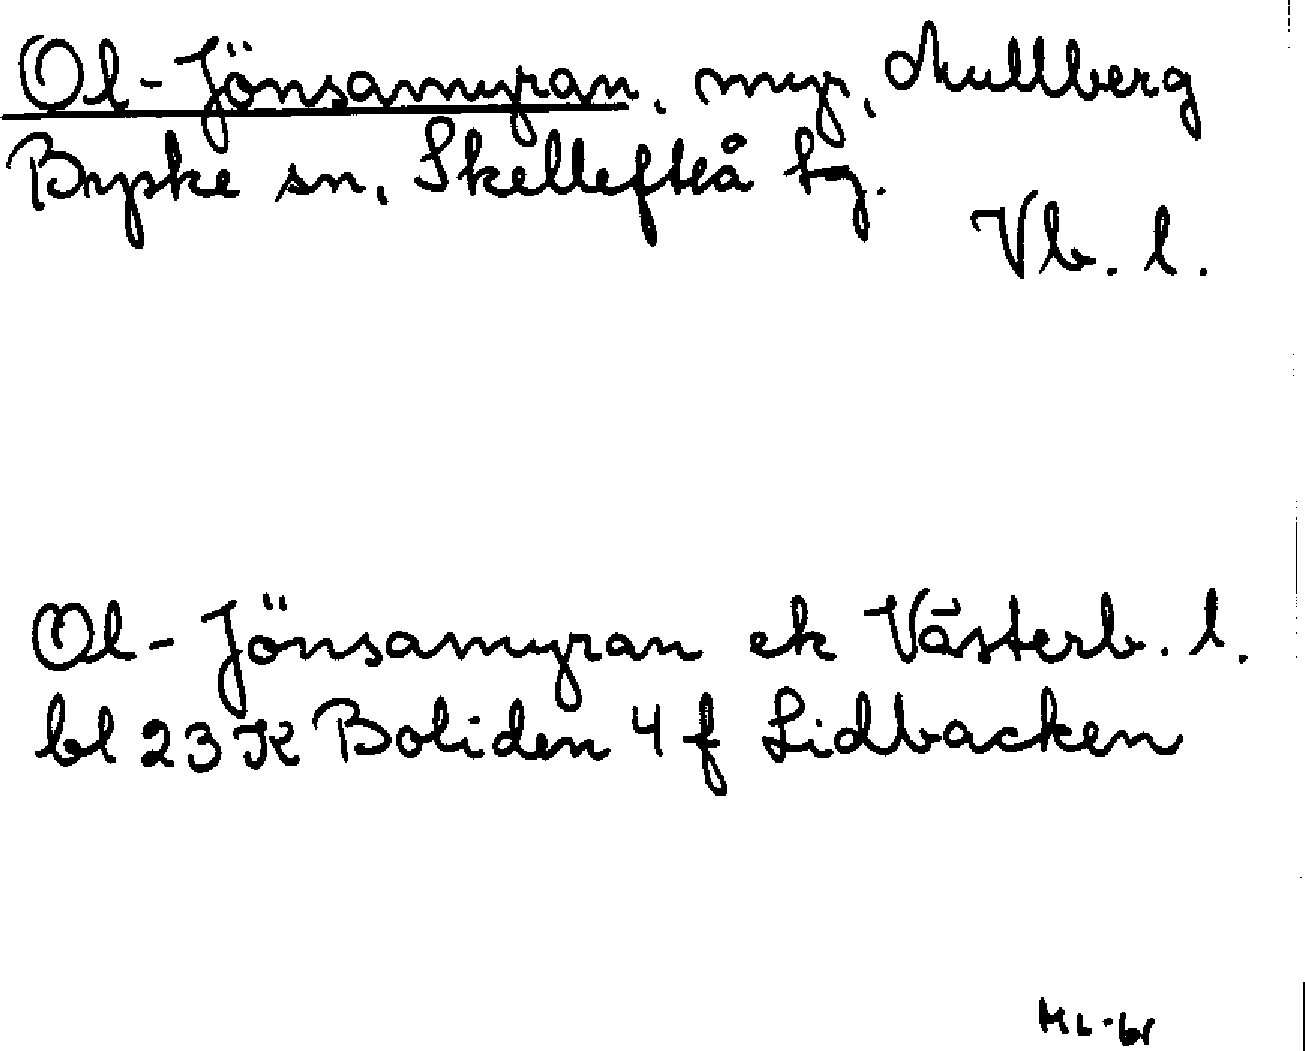 Ol-Jönsamyran, myr, Mullberg
Byske sn, Skellefteå tg.
Vb. l.
Ol-Jönsamyran ek Västerb. l.
bl 23 K Boliden 4 f Lidbacken
ML-61